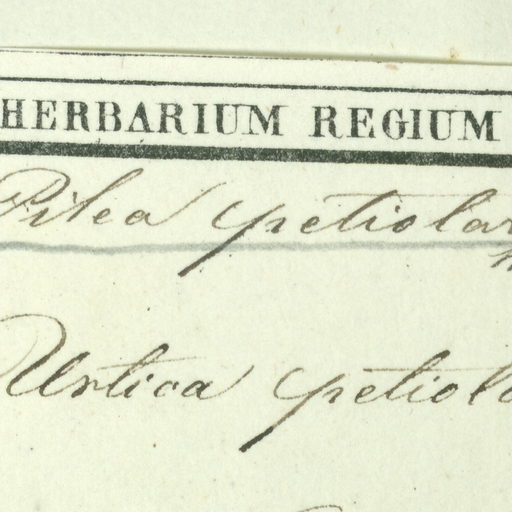 HERBARIUM REGIUM
Pilea petiolar
Urtica petiola